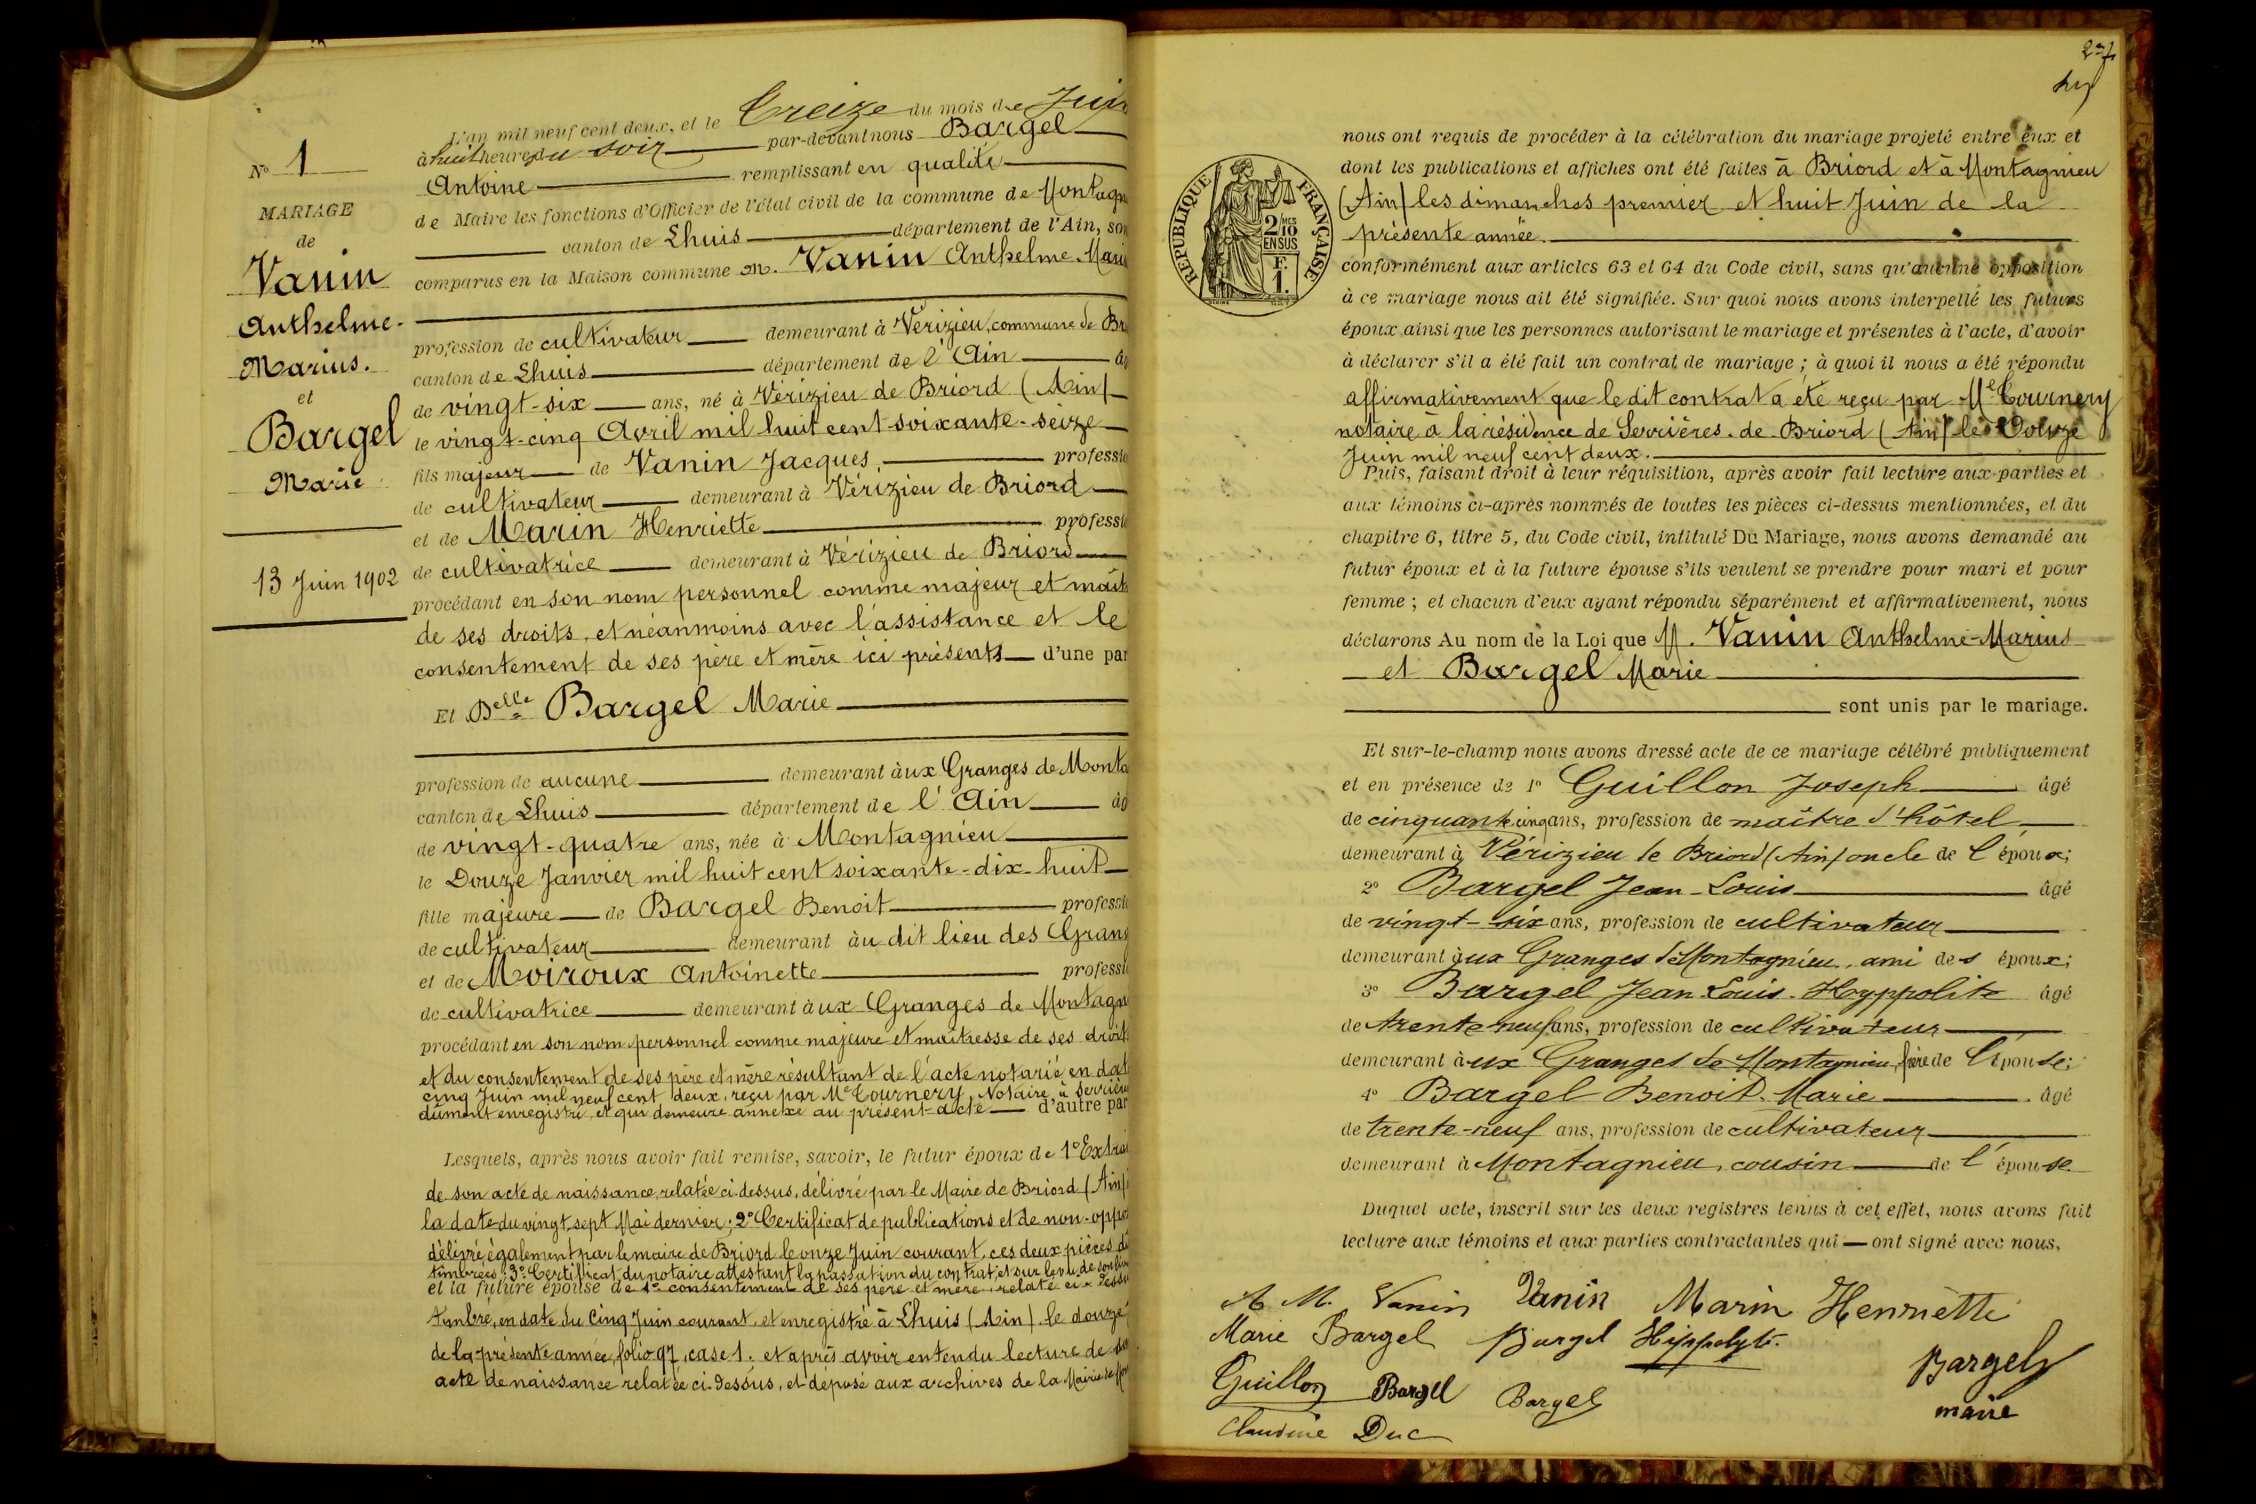 N° 1
MARIAGE
de
Vanin
Anthelme-
Marius.
et
Bargel
Marie
13 Juin 1902
L'an mil neuf cent deux, et le Treize du mois de Juin
à huit heures du soir par-devant nous Bargel
Antoine remplissant en qualité
de Maire les fonctions d'Officier de l'état civil de la commune de Montagn
canton de Lhuis département de l'Ain, son
comparus en la Maison commune M. Vanin Anthelme Mari
profession de cultivateur demeurant à Vérizieu, commune de Br
canton de Lhuis département de l'Ain âg
de vingt-six ans, né à Vérizieu de Briord (Ain)
le vingt-cinq Avril mil huit cent soixante-seize
fils majeur de Vanin Jacques, professio
de cultivateur demeurant à Vérizieu de Briord
et de Marin Henriette professio
de cultivatrice demeurant à Vérizieu de Briord
procédant en son nom personnel comme majeur et maît
de ses droits, et néanmoins avec l'assistance et le
consentement de ses père et mère ici présents d'une par
Et Delle Bargel Marie
profession de aucune demeurant àux Granges de Monta
canton de Lhuis département de l'Ain âg
de vingt-quatre ans, née à Montagnieu
le Douze Janvier mil huit cent soixante-dix-huit
fille majeure de Bargel Benoit professio
de cultivateur demeurant àu dit lieu des Grang
et de Moiroux Antoinette professio
de cultivatrice demeurant àux Granges de Montagn
procédant en son nom personnel comme majeure et maîtresse de ses droits
et du consentement de ses père et mère résultant de l'acte notarié en dat
cinq Juin mil neuf cent deux, reçu par Me Tournery, Notaire à Serrièr
dûment enregistré, et qui demeure annexé au présent acte d'autre par
Lesquels, après nous avoir fait remise, savoir, le futur époux de 1° Extrai
de son acte de naissance, relatée ci-dessus, délivré par le Maire de Briord (Ain)
la date du vingt-sept Mai dernier; 2° Certificat de publications et de non-oppo
délivré également par le maire de Briord le onze Juin courant, ces deux pièces d
timbrées; 3° Certificat du notaire attestant la passation du contrat, et sur le vu de son
et la future épouse de 1° consentement de ses père et mère, relaté ci-dessu
timbré, en date du Cinq Juin courant, et enregistré à Lhuis (Ain) le douze
de la présente année, folio 97, case 1; et après avoir entendu lecture de son
acte de naissance relatée ci-dessus, et déposé aux archives de la Mairie de Mon
RÉPUBLIQUE FRANÇAISE
2/10 MES
EN SUS
F.
1.
nous ont requis de procéder à la célébration du mariage projeté entre eux et
dont les publications et affiches ont été faites à Briord et à Montagnieu
(Ain) les dimanches premier et huit Juin de la
présente année.
conformément aux articles 63 et 64 du Code civil, sans qu'aucune opposition
à ce mariage nous ait été signifiée. Sur quoi nous avons interpellé les futurs
époux ainsi que les personnes autorisant le mariage et présentes à l'acte, d'avoir
à déclarer s'il a été fait un contrat de mariage; à quoi il nous a été répondu
affirmativement que le dit contrat a été reçu par Me Tournery
notaire à la résidence de Serrières-de-Briord (Ain) le Douze
Juin mil neuf cent deux.
Puis, faisant droit à leur réquisition, après avoir fait lecture aux parties et
aux témoins ci-après nommés de toutes les pièces ci-dessus mentionnées, et du
chapitre 6, titre 5, du Code civil, intitulé Du Mariage, nous avons demandé au
futur époux et à la future épouse s'ils veulent se prendre pour mari et pour
femme; et chacun d'eux ayant répondu séparément et affirmativement, nous
déclarons Au nom de la Loi que M. Vanin Anthelme-Marius
et Bargel Marie
sont unis par le mariage.
Et sur-le-champ nous avons dressé acte de ce mariage célébré publiquement
et en présence de 1° Guillon Joseph âgé
de cinquante cinq ans, profession de maître d'hôtel
demeurant à Vérizieu de Briord (Ain) oncle de l'époux;
2° Bargel Jean-Louis âgé
de vingt-six ans, profession de cultivateur
demeurant àux Granges de Montagnieu, ami des époux;
3° Bargel Jean-Louis-Hyppolite âgé
de trente neuf ans, profession de cultivateur
demeurant àux Granges de Montagnieu, frère de l'épouse;
4° Bargel Benoit-Marie âgé
de trente-neuf ans, profession de cultivateur
demeurant à Montagnieu, cousin de l'épouse
Duquel acte, inscrit sur les deux registres tenus à cet effet, nous avons fait
lecture aux témoins et aux parties contractantes qui ont signé avec nous,
A M. Vanin Vanin Marin Henriette
Marie Bargel Bargel Hippolyte
Guillon Bargel Bargel Bargel
maire
Claudine Duc